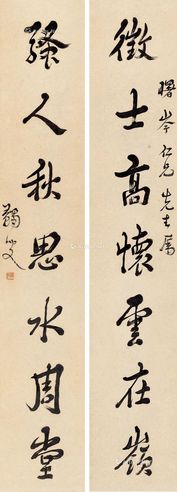 徵士高懷雲在嶺
曙岑仁兄先生屬
騷人秋思水周堂
鞠叟